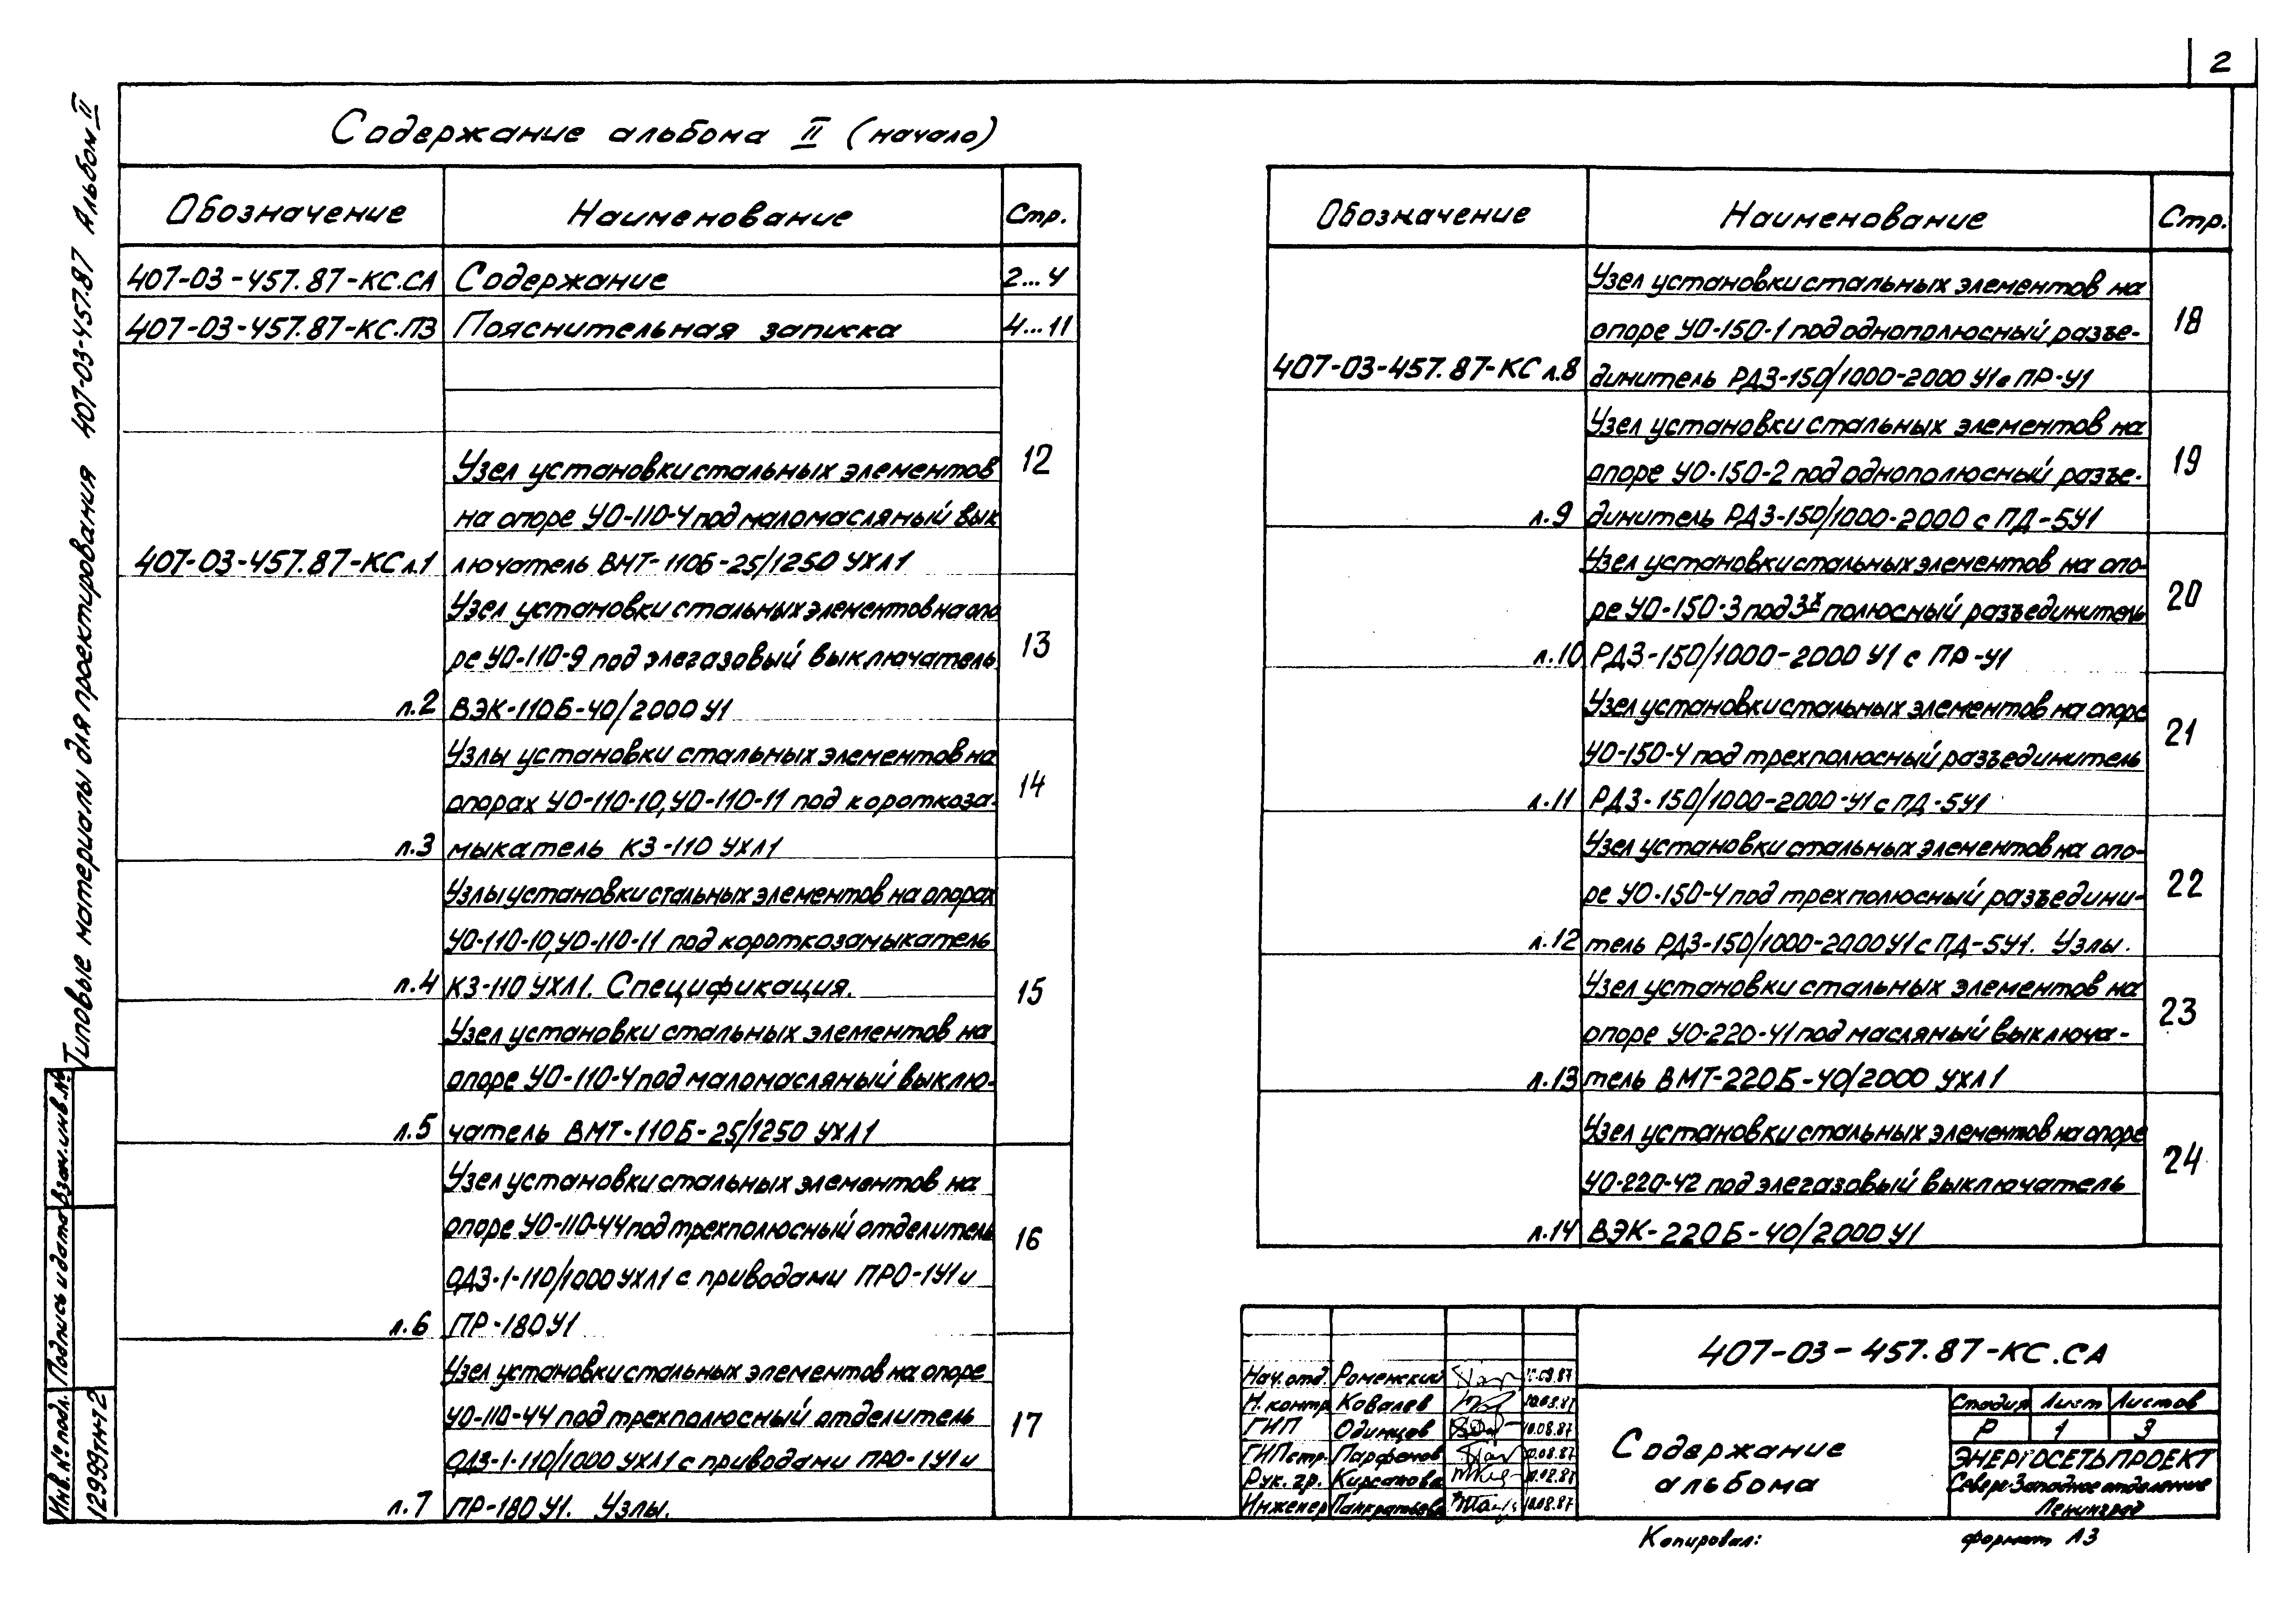 2
Содержание альбома II (начало)
Обозначение Наименование Стр.
407-03-457.87-КС.СА Содержание 2...4
407-03-457.87-КС.ПЗ Пояснительная записка 4...11
Узел установки стальных элементов 12
на опоре УО-110-4 под маломасляный вык
407-03-457.87-КС л.1 лючатель ВМТ-110Б-25/1250 УХЛ1
Узел установки стальных элементов на опо
ре УО-110-9 под элегазовый выключатель 13
л.2 ВЭК-110Б-40/2000 У1
Узлы установки стальных элементов на
опорах УО-110-10, УО-110-11 под короткоза- 14
л.3 мыкатель КЗ-110 УХЛ1
Узлы установки стальных элементов на опорах
УО-110-10, УО-110-11 под короткозамыкатель
л.4 КЗ-110 УХЛ1. Спецификация. 15
Узел установки стальных элементов на
опоре УО-110-4 под маломасляный выклю-
л.5 чатель ВМТ-110Б-25/1250 УХЛ1
Узел установки стальных элементов на
опоре УО-110-44 под трехполюсный отделитель 16
ОДЗ-1-110/1000 УХЛ1 с приводами ПРО-1У1 и
л.6 ПР-180У1
Узел установки стальных элементов на опоре
УО-110-44 под трехполюсный отделитель 17
ОДЗ-1-110/1000 УХЛ1 с приводами ПРО-1У1 и
л.7 ПР-180 У1. Узлы.
Обозначение Наименование Стр.
Узел установки стальных элементов на
опоре УО-150-1 под однополюсный разъе- 18
407-03-457.87-КС л.8 динитель РДЗ-150/1000-2000 У1 с ПР-У1
Узел установки стальных элементов на
опоре УО-150-2 под однополюсный разъе- 19
л.9 динитель РДЗ-150/1000-2000 с ПД-5У1
Узел установки стальных элементов на опо-
ре УО-150-3 под 3х полюсный разъединитель 20
л.10 РДЗ-150/1000-2000 У1 с ПР-У1
Узел установки стальных элементов на опоре
УО-150-4 под трехполюсный разъединитель 21
л.11 РДЗ-150/1000-2000-У1 с ПД-5У1
Узел установки стальных элементов на опо-
ре УО-150-4 под трехполюсный разъедини- 22
л.12 тель РДЗ-150/1000-2000 У1 с ПД-5У1. Узлы.
Узел установки стальных элементов на
опоре УО-220-41 под масляный выключа- 23
л.13 тель ВМТ-220Б-40/2000 УХЛ1
Узел установки стальных элементов на опоре
УО-220-42 под элегазовый выключатель 24
л.14 ВЭК-220Б-40/2000 У1
407-03-457.87-КС.СА
Нач.отд. Роменский
Н.контр Ковалев
ГИП Одинцов 10.08.87
ГИПстр. Парфенов
Рук. гр. Кирсанова
Инженер Панкратьева 10.08.87
Содержание
альбома
Стадия Лист Листов
Р 1 3
ЭНЕРГОСЕТЬПРОЕКТ
Северо-Западное отделение
Ленинград
Копировал: формат А3
Типовые материалы для проектирования 407-03-457.87 Альбом II
Взам.инв.№
Подпись и дата
Инв.№ подл.
12999тм-т2